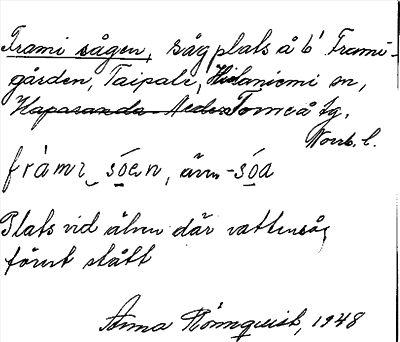 Frami sågen, sågplats å b' Frami-
gården, Taipale, Hietaniemi sn,
Haparanda Neder Torneå tg,
Norrb. l.
frami sóen, även -sóa
Plats vid älven där vattensåg
förut stått
Anna Rönnquist, 1948